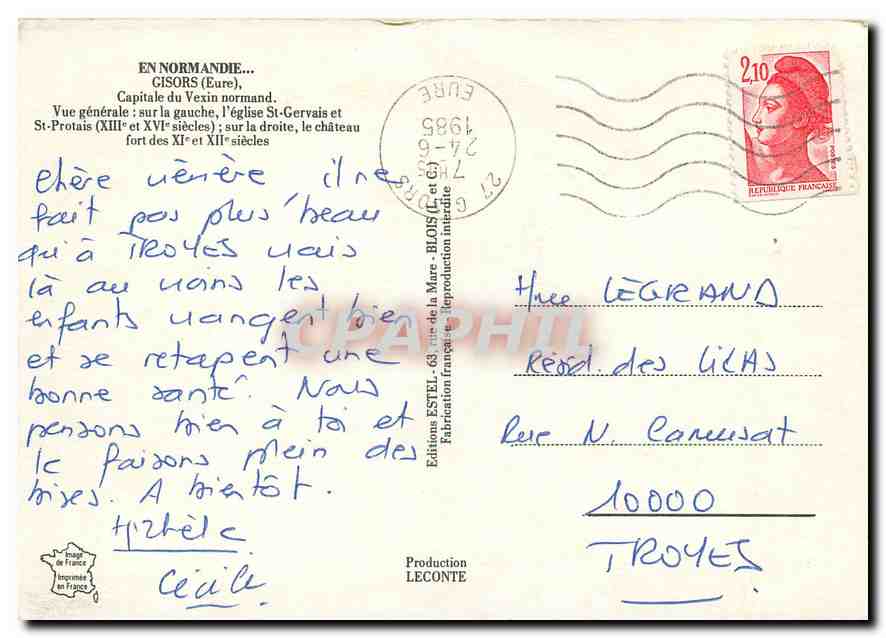 EN NORMANDIE...
GISORS (Eure),
Capitale du Vexin normand.
Vue générale : sur la gauche, l'église St-Gervais et
St-Protais (XIIIe et XVIe siècles) ; sur la droite, le château
fort des XIe et XIIe siècles
Chère mémère, il ne
fait pas plus beau
qu'à TROYES mais
là au moins les
enfants mangent bien
et se retapent une
bonne santé. Nous
pensons bien à toi et
te faisons plein des
bises. A bientôt.
Cécile
Image
de France
Imprimée
en France
Production
LECONTE
Editions ESTEL - 63, rue de la Mare - BLOIS (L. et C.)
Fabrication française - Reproduction interdite
27 GISORS
7H
24-6
1985
EURE
2,10
POSTES
REPUBLIQUE FRANÇAISE
Mme LEGRAND
Résid. des LILAS
Rue N. Camusat
10000
TROYES
CPAPHIL